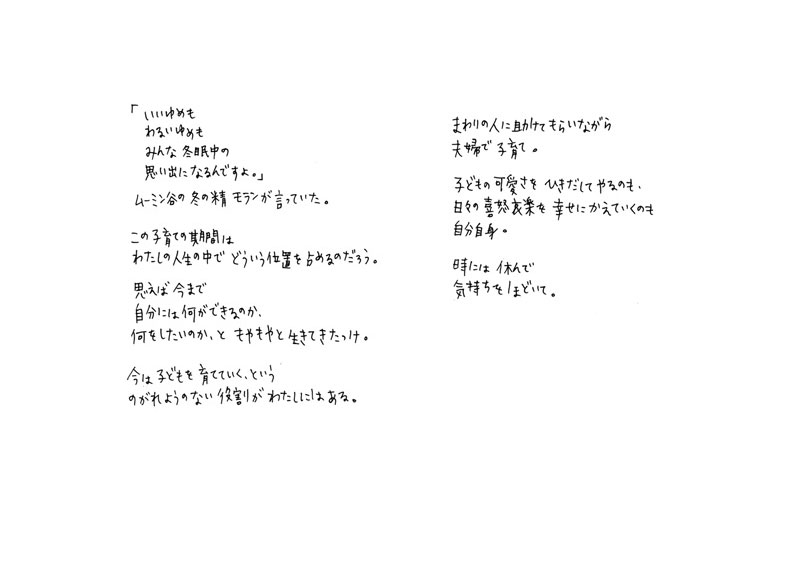 「いいゆめも
わるいゆめも
みんな冬眠中の
思い出になるんですよ。」
ムーミン谷の冬の精 モランが言っていた。
この子育ての期間は
わたしの人生の中で どういう位置を占めるのだろう。
思えば 今まで
自分には何ができるのか、
何をしたいのか、と もやもやと生きてきたっけ。
今は子どもを 育てていく、という
のがれようのない 役割が わたしにはある。
まわりの人に助けてもらいながら
夫婦で子育て。
子どもの可愛さを ひきだしてやるのも、
日々の喜怒哀楽を 幸せにかえていくのも
自分自身。
時には 休んで
気持ちをほどいて。